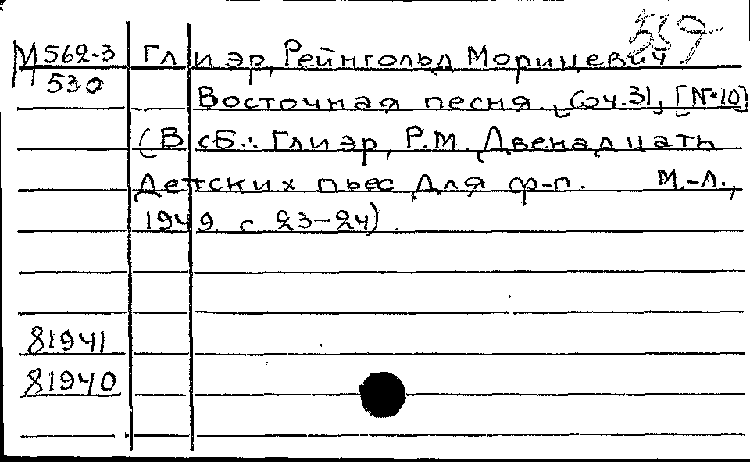 559
М 562-3 Глиэр, РейнгольдМорицевич
530
Восточная песня. Соч.31, [№10]
(В сб.: Глиэр, Р.М. Двенадцать
детских пьес для ф-п. М.-Л.,
1949. с 23-24).
81941
81940